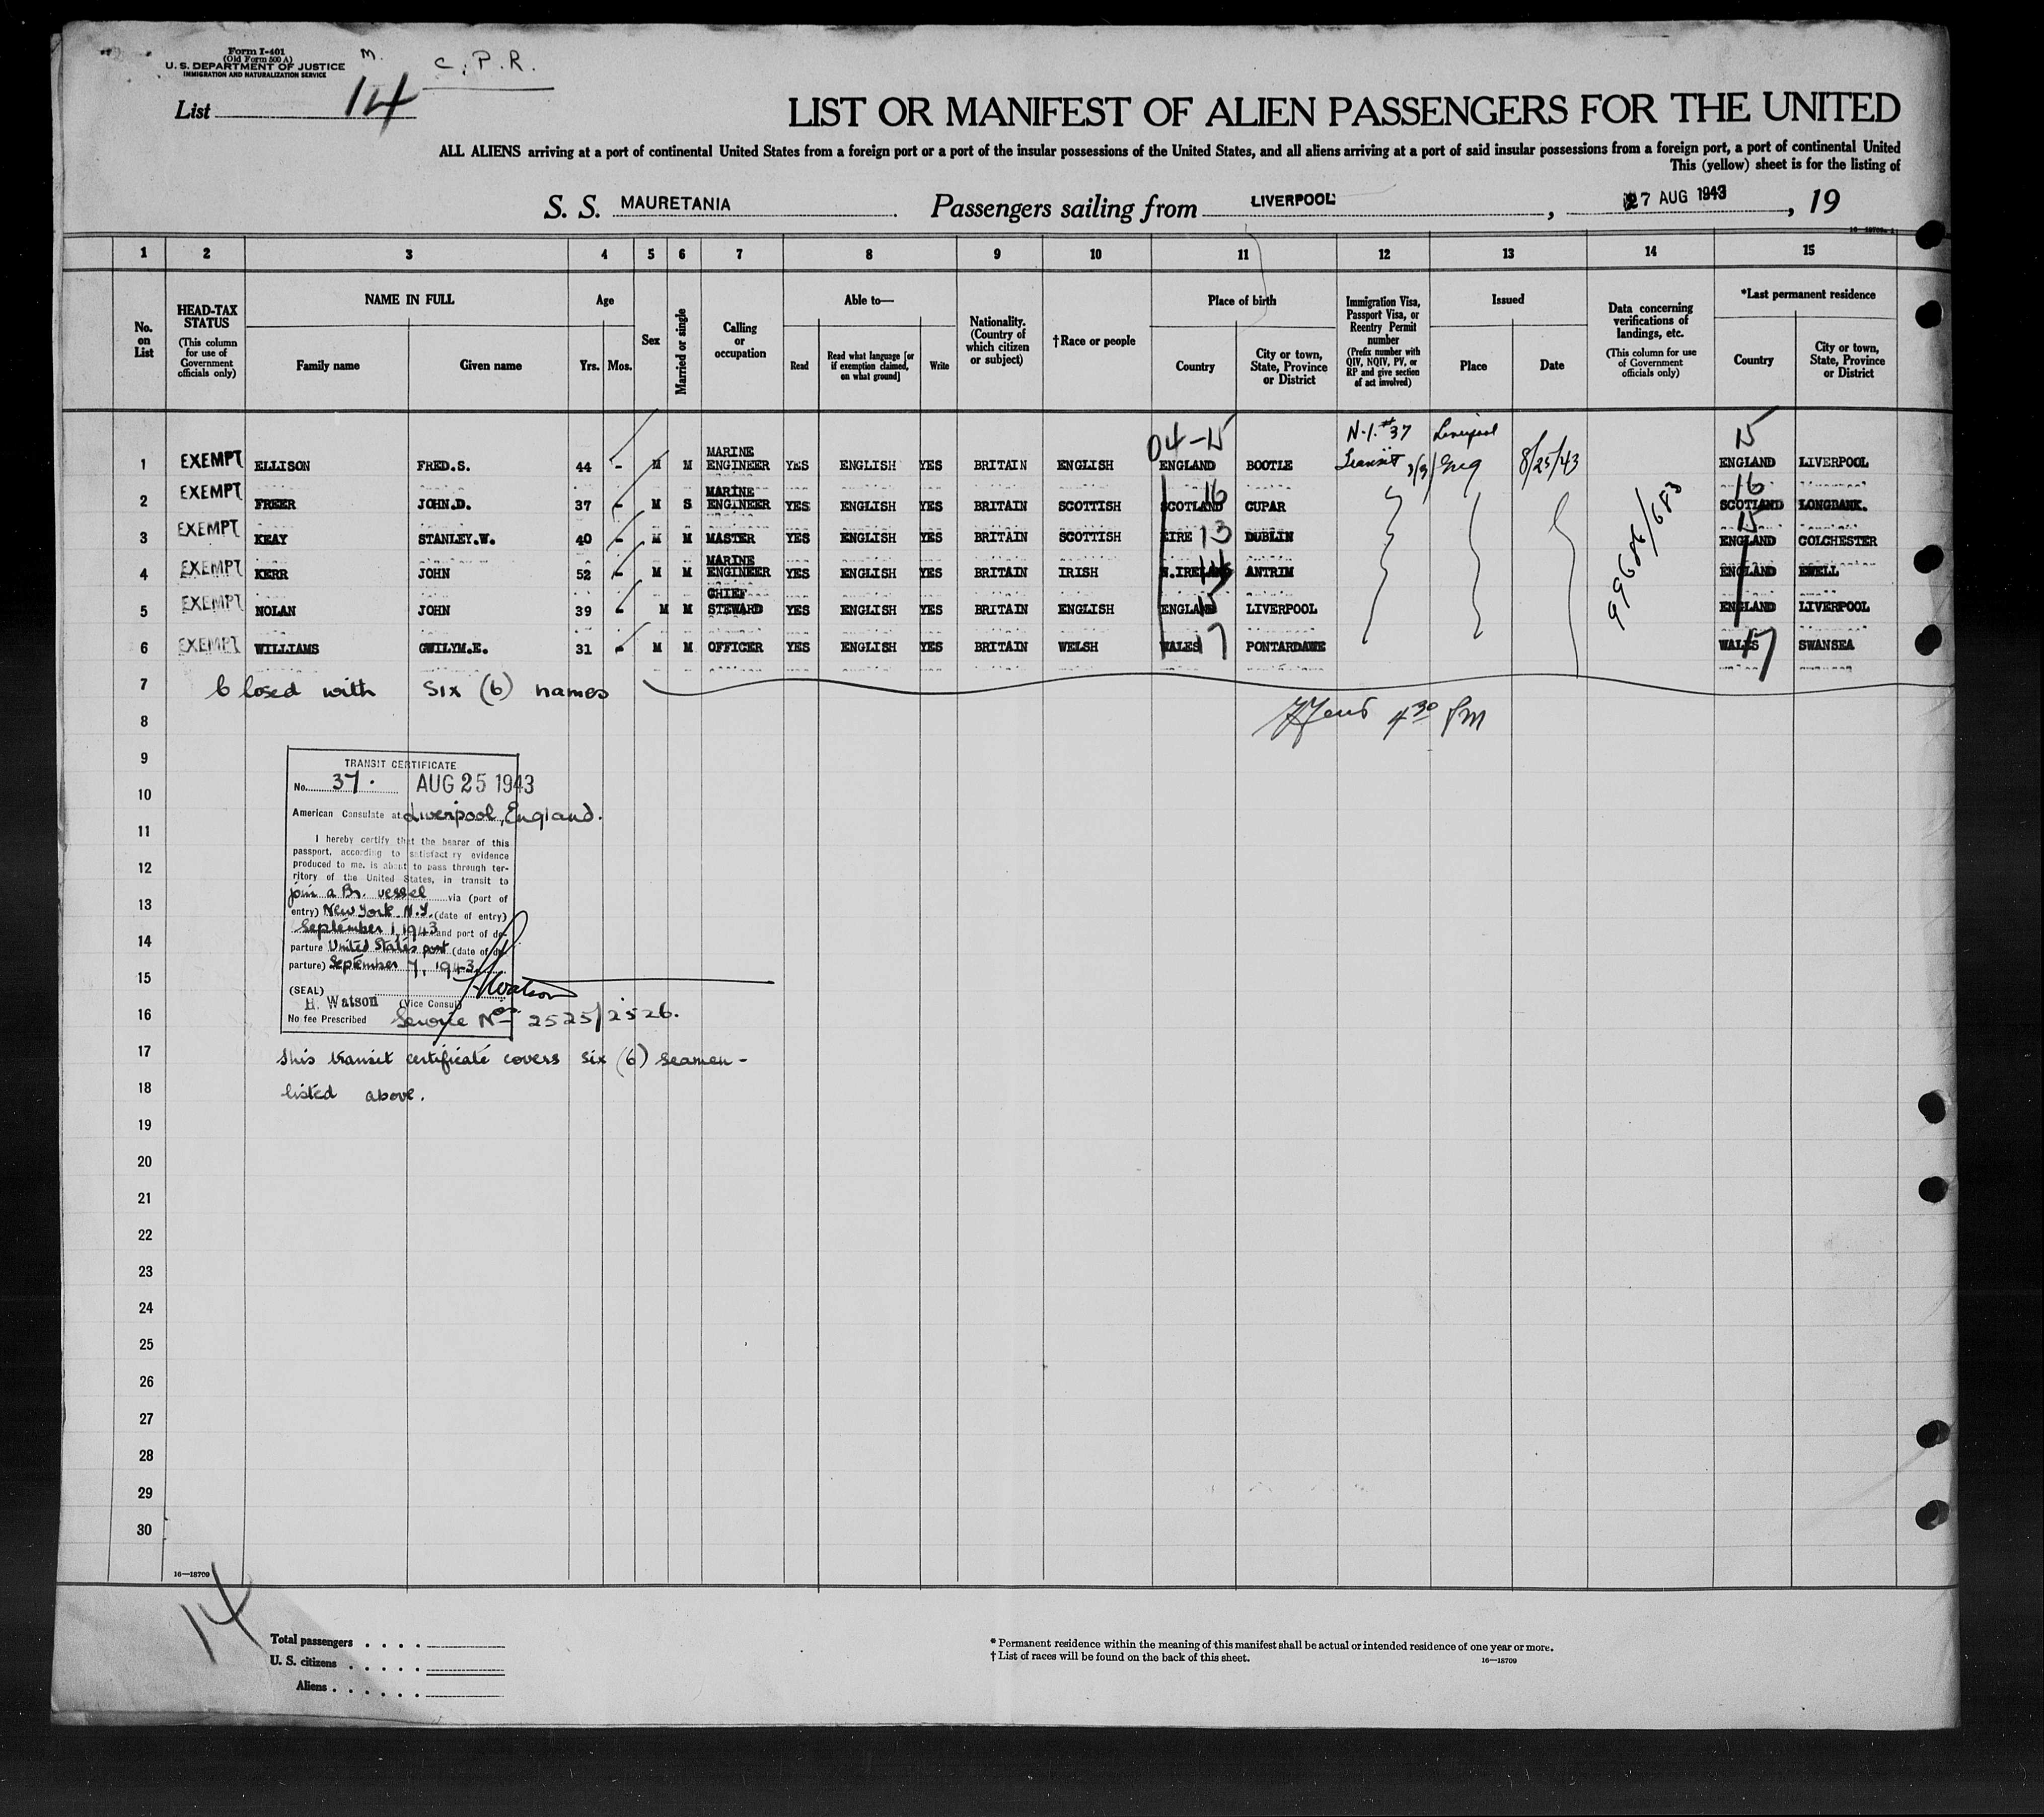 Form I-401
(Old Form 500 A)
U. S. DEPARTMENT OF JUSTICE
IMMIGRATION AND NATURALIZATION SERVICE
M.
C. P. R.
List 14
LIST OR MANIFEST OF ALIEN PASSENGERS FOR THE UNITED
ALL ALIENS arriving at a port of continental United States from a foreign port or a port of the insular possessions of the United States, and all aliens arriving at a port of said insular possessions from a foreign port, a port of continental United
This (yellow) sheet is for the listing of
S. S. MAURETANIA Passengers sailing from LIVERPOOL, 27 AUG 1943, 19
1 2 3 4 5 6 7 8 9 10 11 12 13 14 15
No. on List
HEAD-TAX STATUS (This column for use of Government officials only)
NAME IN FULL
Family name
Given name
Age
Yrs. Mos.
Sex
Married or single
Calling or occupation
Able to—
Read
Read what language [or if exemption claimed, on what ground]
Write
Nationality. (Country of which citizen or subject)
†Race or people
Place of birth
Country
City or town, State, Province or District
Immigration Visa, Passport Visa, or Reentry Permit number (Prefix number with QIV, NQIV, PV, or RP and give section of act involved)
Issued
Place
Date
Data concerning verifications of landings, etc. (This column for use of Government officials only)
*Last permanent residence
Country
City or town, State, Province or District
04-15 N.I. #37 Liverpool 15
1 EXEMPT ELLISON FRED.S. 44 - M M MARINE ENGINEER YES ENGLISH YES BRITAIN ENGLISH ENGLAND BOOTLE Transit Eng 8/25/43 ENGLAND LIVERPOOL
2 EXEMPT FREER JOHN.D. 37 - M S MARINE ENGINEER YES ENGLISH YES BRITAIN SCOTTISH SCOTLAND 16 CUPAR SCOTLAND 16 LONGBANK.
3 EXEMPT KEAY STANLEY.W. 40 - M M MASTER YES ENGLISH YES BRITAIN SCOTTISH EIRE 13 DUBLIN ENGLAND 15 COLCHESTER
4 EXEMPT KERR JOHN 52 - M M MARINE ENGINEER YES ENGLISH YES BRITAIN IRISH N.IRELAND 14 ANTRIM ENGLAND EWELL
5 EXEMPT NOLAN JOHN 39 - M M CHIEF STEWARD YES ENGLISH YES BRITAIN ENGLISH ENGLAND 15 LIVERPOOL ENGLAND LIVERPOOL
6 EXEMPT WILLIAMS GWILYM.E. 31 - M M OFFICER YES ENGLISH YES BRITAIN WELSH WALES 17 PONTARDAWE WALES 17 SWANSEA
99686/683
7 Closed with six (6) names
8 4 30 PM
9
10
11
12
13
14
15
16
17
18
19
20
21
22
23
24
25
26
27
28
29
30
TRANSIT CERTIFICATE
No. 37. AUG 25 1943
American Consulate at Liverpool, England.
I hereby certify that the bearer of this
passport, according to satisfactory evidence
produced to me, is about to pass through ter-
ritory of the United States, in transit to
join a Br. vessel via (port of
entry) New York N.Y. (date of entry)
September 1, 1943 and port of de-
parture United States port (date of de-
parture) September 7, 1943
(SEAL) HWatson
H. Watson (Vice Consul)
No fee Prescribed Service Nos 2525/2526.
This transit certificate covers six (6) seamen -
listed above.
16—18709
14
Total passengers
U. S. citizens
Aliens
* Permanent residence within the meaning of this manifest shall be actual or intended residence of one year or more.
† List of races will be found on the back of this sheet.
16—18709